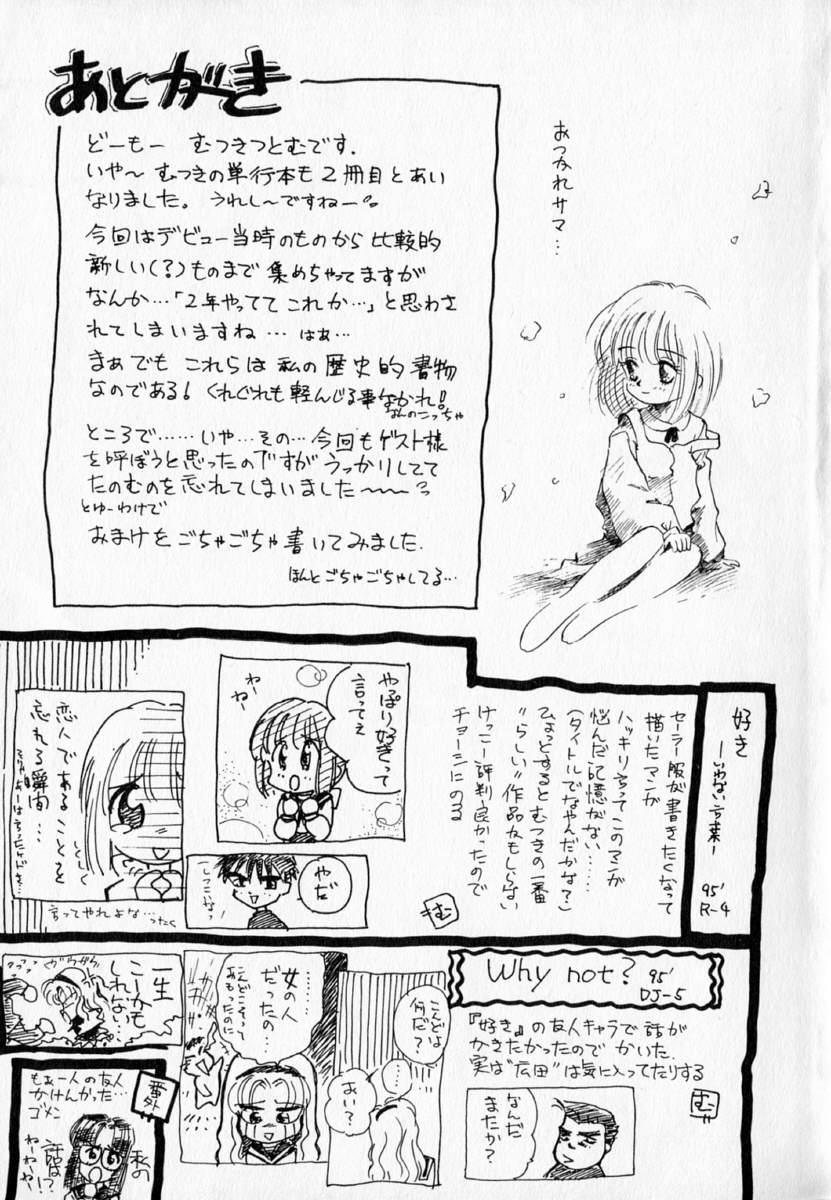 あとがき
どーもー むつきつとむです.
いや〜 むつきの単行本も2冊目とあい
なりました。うれしーですねー
今回はデビュー当時のものから比較的
新しい(?)ものまで集めちゃってますが
なんか…「2年やっててこれか…」と思わさ
れてしまいますね…はぁ…
まぁでもこれらは私の歴史的書物
なのである! くれぐれも軽んじる事なかれ!
なんのこっちゃ
ところで……いや…その…今回もゲスト様
を呼ぼうと思ったのですがうっかりしてて
たのむのを忘れてしまいました〜〜
とゆーわけで
おまけをごちゃごちゃ書いてみました.
ほんとごちゃごちゃしてる…
おつかれサマ…
好き
ーいけない言葉ー
95'
R-4
セーラー服が書きたくなって
描いたマンガ
ハッキリ言ってこのマンガ
悩んだ記憶がない……
(タイトルでなやんだかな?)
ひょっとするとむつきの一番
"らしい"作品かもしらない
けっこー評判良かったので
チョーシにのる
む
やっぱり好きって
言ってぇ
ねー
ねー
やだ
しつこいなっ
恋人であることを
忘れる瞬間…
しくしく
言ってやれよな…ったく
Why not?
95'
DJ-5
『好き』の友人キャラで話が
かきたかったのでかいた.
実は"広田"は気に入ってたりする
む
なんだ
またか?
こんどは
何だ?
あい?
女の人
だったの…
こんどこそって
おもったのに
一生
こーかも
しれない…
番外
もぉ一人の友人
かけんかった…
ゴメン
私の
話は?
ねーねー